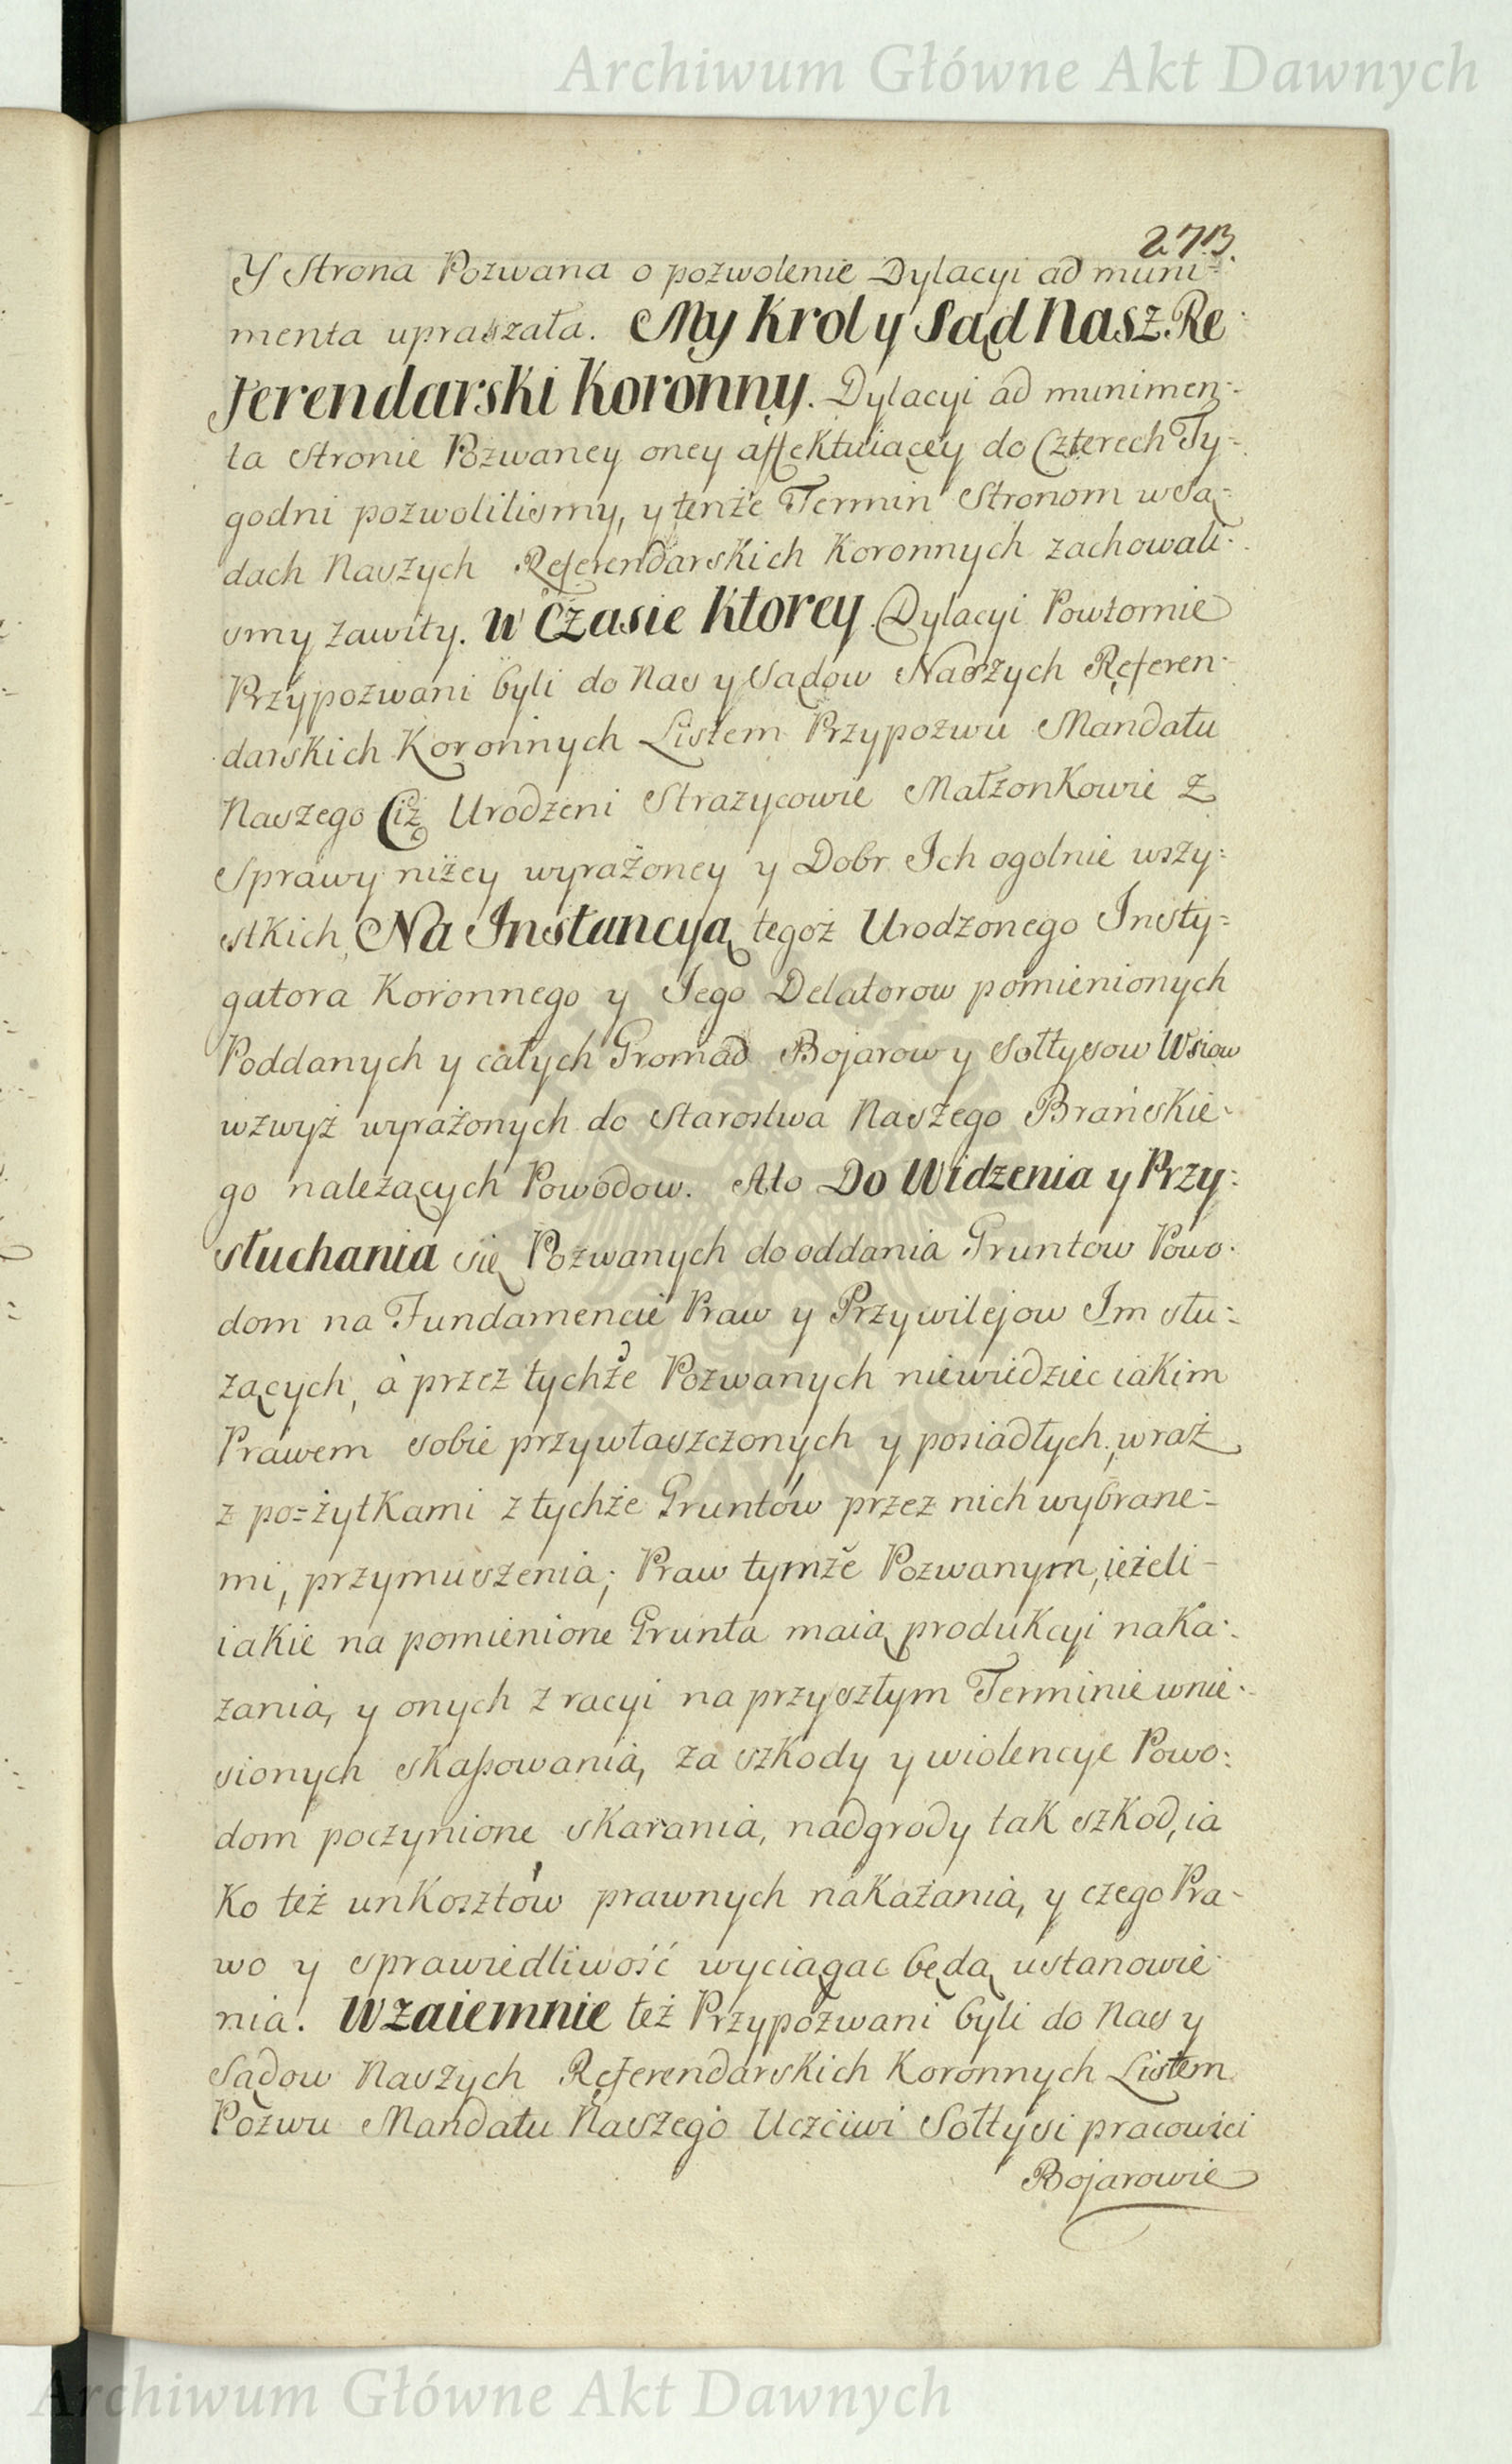 Archiwum Główne Akt Dawnych
273.
Y Strona Pozwana o pozwolenie Dylacyi ad muni=
menta upraszała. My Krol y Sąd Nasz Re
ferendarski Koronny. Dylacyi ad munimen=
ta Stronie Pozwaney oney affektuiącey do Czterech Ty=
godni pozwoliliśmy, y tenże Termin Stronom w Są=
dach Naszych Referendarskich Koronnych zachowali=
smy zawity. W Czasie Ktorey Dylacyi Powtornie
Przypozwani byli do Nas y Sądow Naszych Referen=
darskich Koronnych Listem Przypozwu Mandatu
Naszego Ciż Urodzeni Strazycowie Małżonkowie z
Sprawy niżey wyrażoney y Dobr Ich ogolnie wszy=
stkich, Na Instancyą tegoż Urodzonego Insty=
gatora Koronnego y Jego Delatorow pomienionych
Poddanych y całych Gromad Bojarow y Sołtysow Wsiow
wzwyż wyrażonych do Starostwa Naszego Brańskie=
go należących Powodow. Ato Do Widzenia y Przy=
słuchania się Pozwanych do oddania Gruntow Powo=
dom na Fundamencie Praw y Przywilejow Im słu=
żących, à przez tychże Pozwanych niewiedziec iakim
Prawem sobie przywłaszczonych y posiadłych, wraz
z po=żytkami z tychże Gruntów przez nich wybrane=
mi, przymuszenia; Praw tymże Pozwanym, ieżeli
iakie na pomienione Grunta maią produkcyi naka=
zania, y onych z racyi na przyszłym Terminie wnie=
sionych skassowania, za szkody y wiolencye Powo=
dom poczynione skarania, nadgrody tak szkod, ia
ko też unkosztów prawnych nakazania, y czego Pra=
wo y sprawiedliwość wyciągac będą ustanowie
nia. Wzaiemnie też Przypozwani byli do Nas y
Sądow Naszych Referendarskich Koronnych Listem
Pozwu Mandatu Naszego Uczciwi Sołtysi pracowici
Bojarowie
Archiwum Główne Akt Dawnych